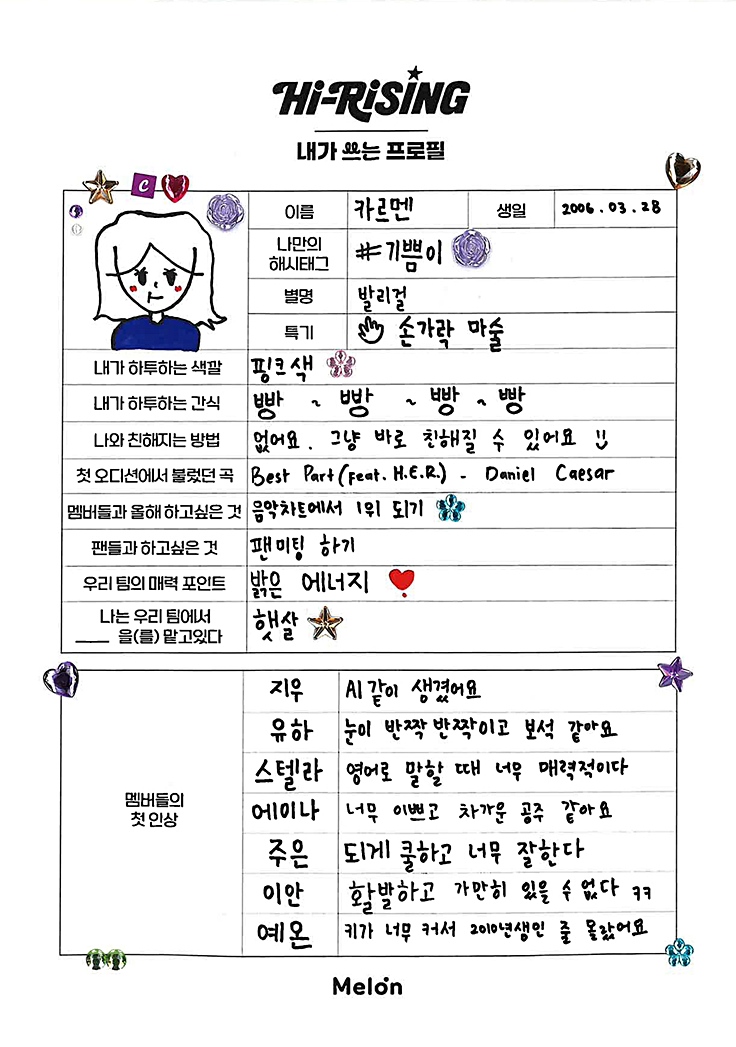 Hi-RiSING
내가 쓰는 프로필
C
이름 카르멘 생일 2006.03.28
나만의
해시태그 #기쁨이
별명 발리걸
특기 손가락 마술
내가 하투하는 색깔 핑크색
내가 하투하는 간식 빵 ~ 빵 ~ 빵 ~ 빵
나와 친해지는 방법 없어요. 그냥 바로 친해질 수 있어요
첫 오디션에서 불렀던 곡 Best Part (feat. H.E.R.) - Daniel Caesar
멤버들과 올해 하고싶은 것 음악차트에서 1위 되기
팬들과 하고싶은 것 팬미팅 하기
우리 팀의 매력 포인트 밝은 에너지
나는 우리 팀에서
____ 을(를) 맡고있다 햇살
멤버들의
첫 인상
지우 AI같이 생겼어요
유하 눈이 반짝반짝이고 보석 같아요
스텔라 영어로 말할 때 너무 매력적이다
에이나 너무 이쁘고 차가운 공주 같아요
주은 되게 쿨하고 너무 잘한다
이안 활발하고 가만히 있을 수 없다 ㅋㅋ
예온 키가 너무 커서 2010년생인 줄 몰랐어요
Melon